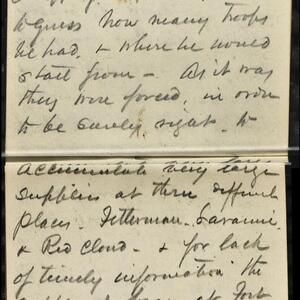 to guess how many troops
he had, & where he would
start from - As it was
they were forced, in order
to be surely right, to
accumulate very large
supplies at three different
places. Fetterman, Laramie,
& Red Cloud - & for lack
of timely information the
at Fort